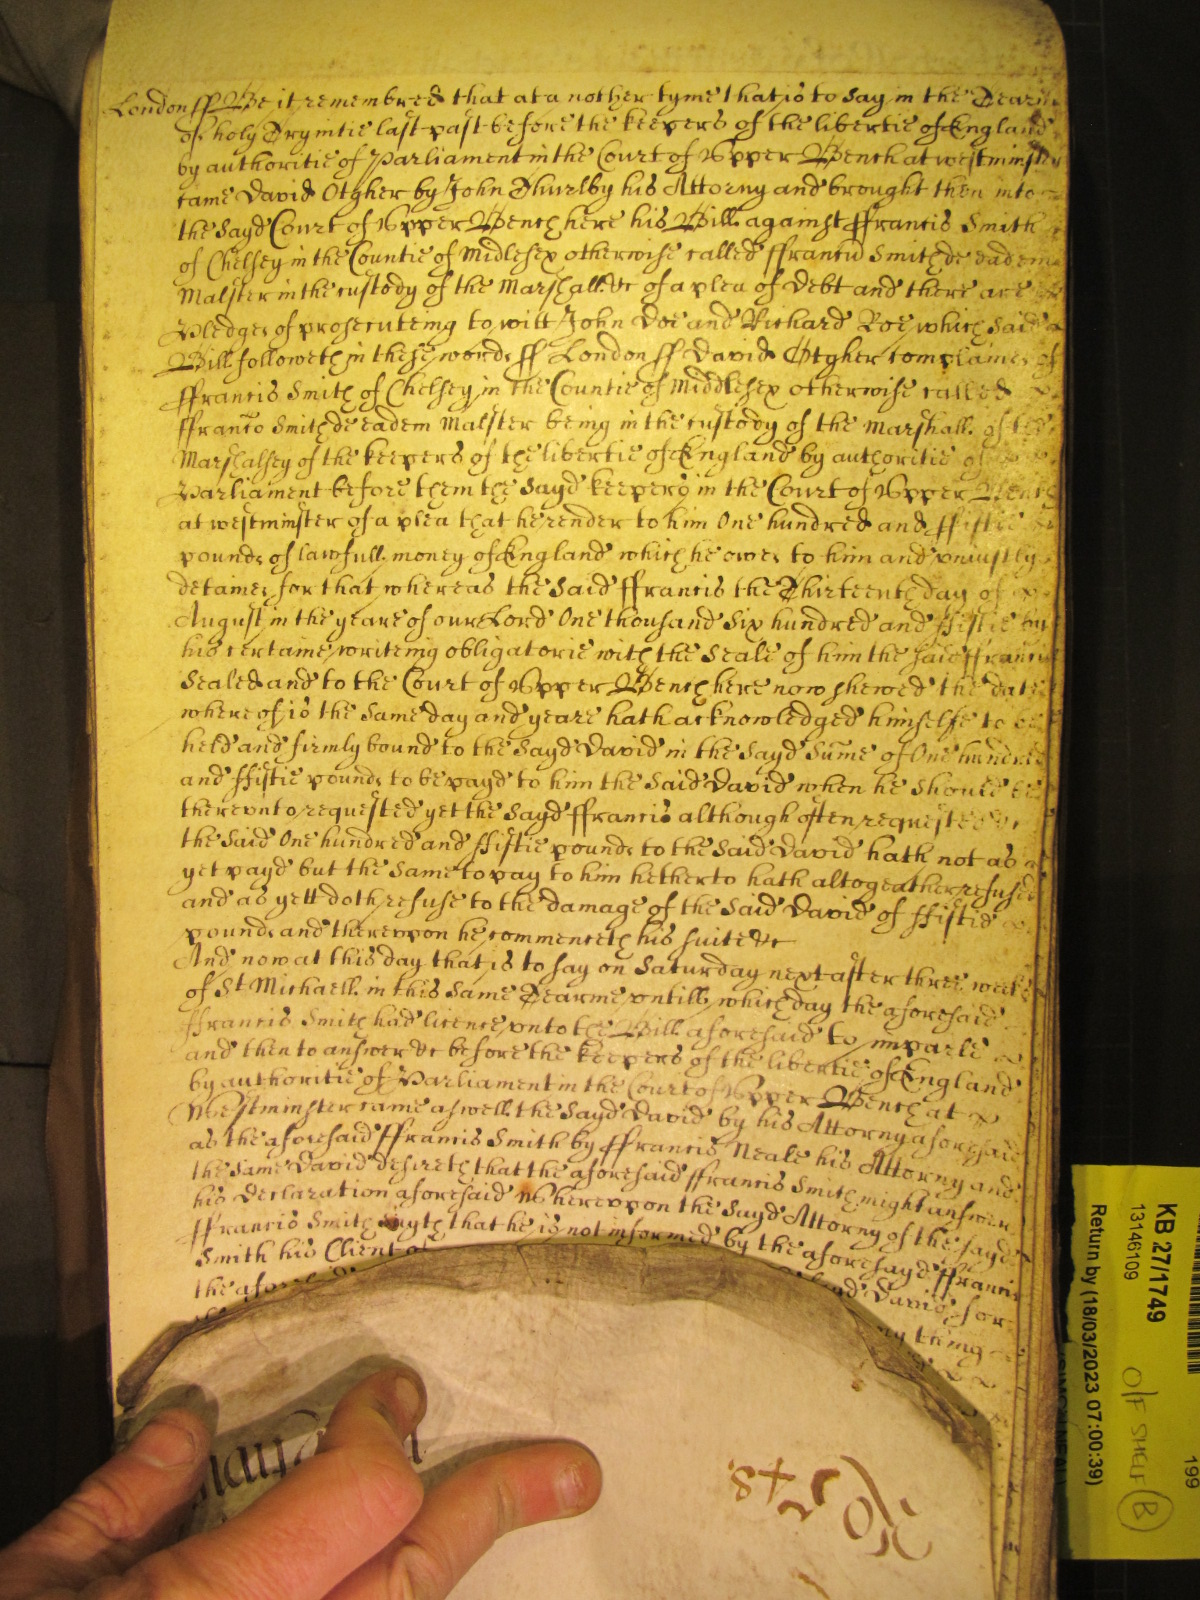 London ss Be it remembred that at a nother tyme that is to say in the Tearme
of holy Trynitie last past before the keepers of the libertie of England
by authoritie of Parliament in the Court of Upper Bench at westminster
came David Otgher by John Thurlby his Attorny and brought then into
the sayd Court of Upper Bench here his Bill against ffrancis Smith
of Chelsey in the Countie of Midlesex otherwise called ffrancu Smith de eadem
Malster in the custody of the Marshall &c of a plea of debt and there are
Pledges of prosecuteing to witt John Doe and Richard Roe which said
Bill followeth in these words ss London ss David Otgher complaines of
ffrancis Smith of Chelsey in the Countie of Middlesex otherwise called
ffranco Smith de eadem Malster being in the custody of the Marshall of the
Marshalsey of the keepers of the libertie of England by authoritie of
Parliament before them the sayd keepers in the Court of Upper Bench
at westminster of a plea that he render to him One hundred and ffiftie
pounds of lawfull money of England which he owes to him and uniustly
detaines for that whereas the said ffrancis the Thirteenth day of
August in the yeare of our Lord One thousand Six hundred and ffiftie by
his certaine writeing obligatorie with the seale of him the said ffrancis
sealed and to the Court of Upper Bench here now shewed the date
where of is the same day and yeare hath acknowledged himselfe to be
held and firmly bound to the sayd David in the sayd sume of One hundred
and ffiftie pounds to be payd to him the said David when he should be
thereunto requested yet the sayd ffrancis although often requested &c
the said One hundred and ffiftie pounds to the said David hath not as
yet payd but the same to pay to him hetherto hath altogeather refused
and as yett doth refuse to the damage of the said David of ffiftie
pounds and thereupon he commenceth his suite &c
And now at this day that is to say on Saturday next after three weeks
of St Michaell in this same Tearme untill which day the aforesaid
ffrancis Smith had licence unto the Bill aforesaid to imparle
and then to answer &c before the keepers of the libertie of England
by authoritie of Parliament in the Court of Upper Bench at
Westminster came aswell the sayd David by his Attorny aforesaid
as the aforesaid ffrancis Smith by ffrancis Neale his Attorny and
the same David desireth that the aforesaid ffrancis Smith might answer
his declaration aforesaid Whereupon the sayd Attorny of the sayd
ffrancis Smith sayth that he is not informed by the aforesayd ffrancis
Smith his Client of
the aforesaid David for
any thing
KB 27/1749
13146109
Return by (18/03/2023 07:00:39)
199
O/F SHELF B